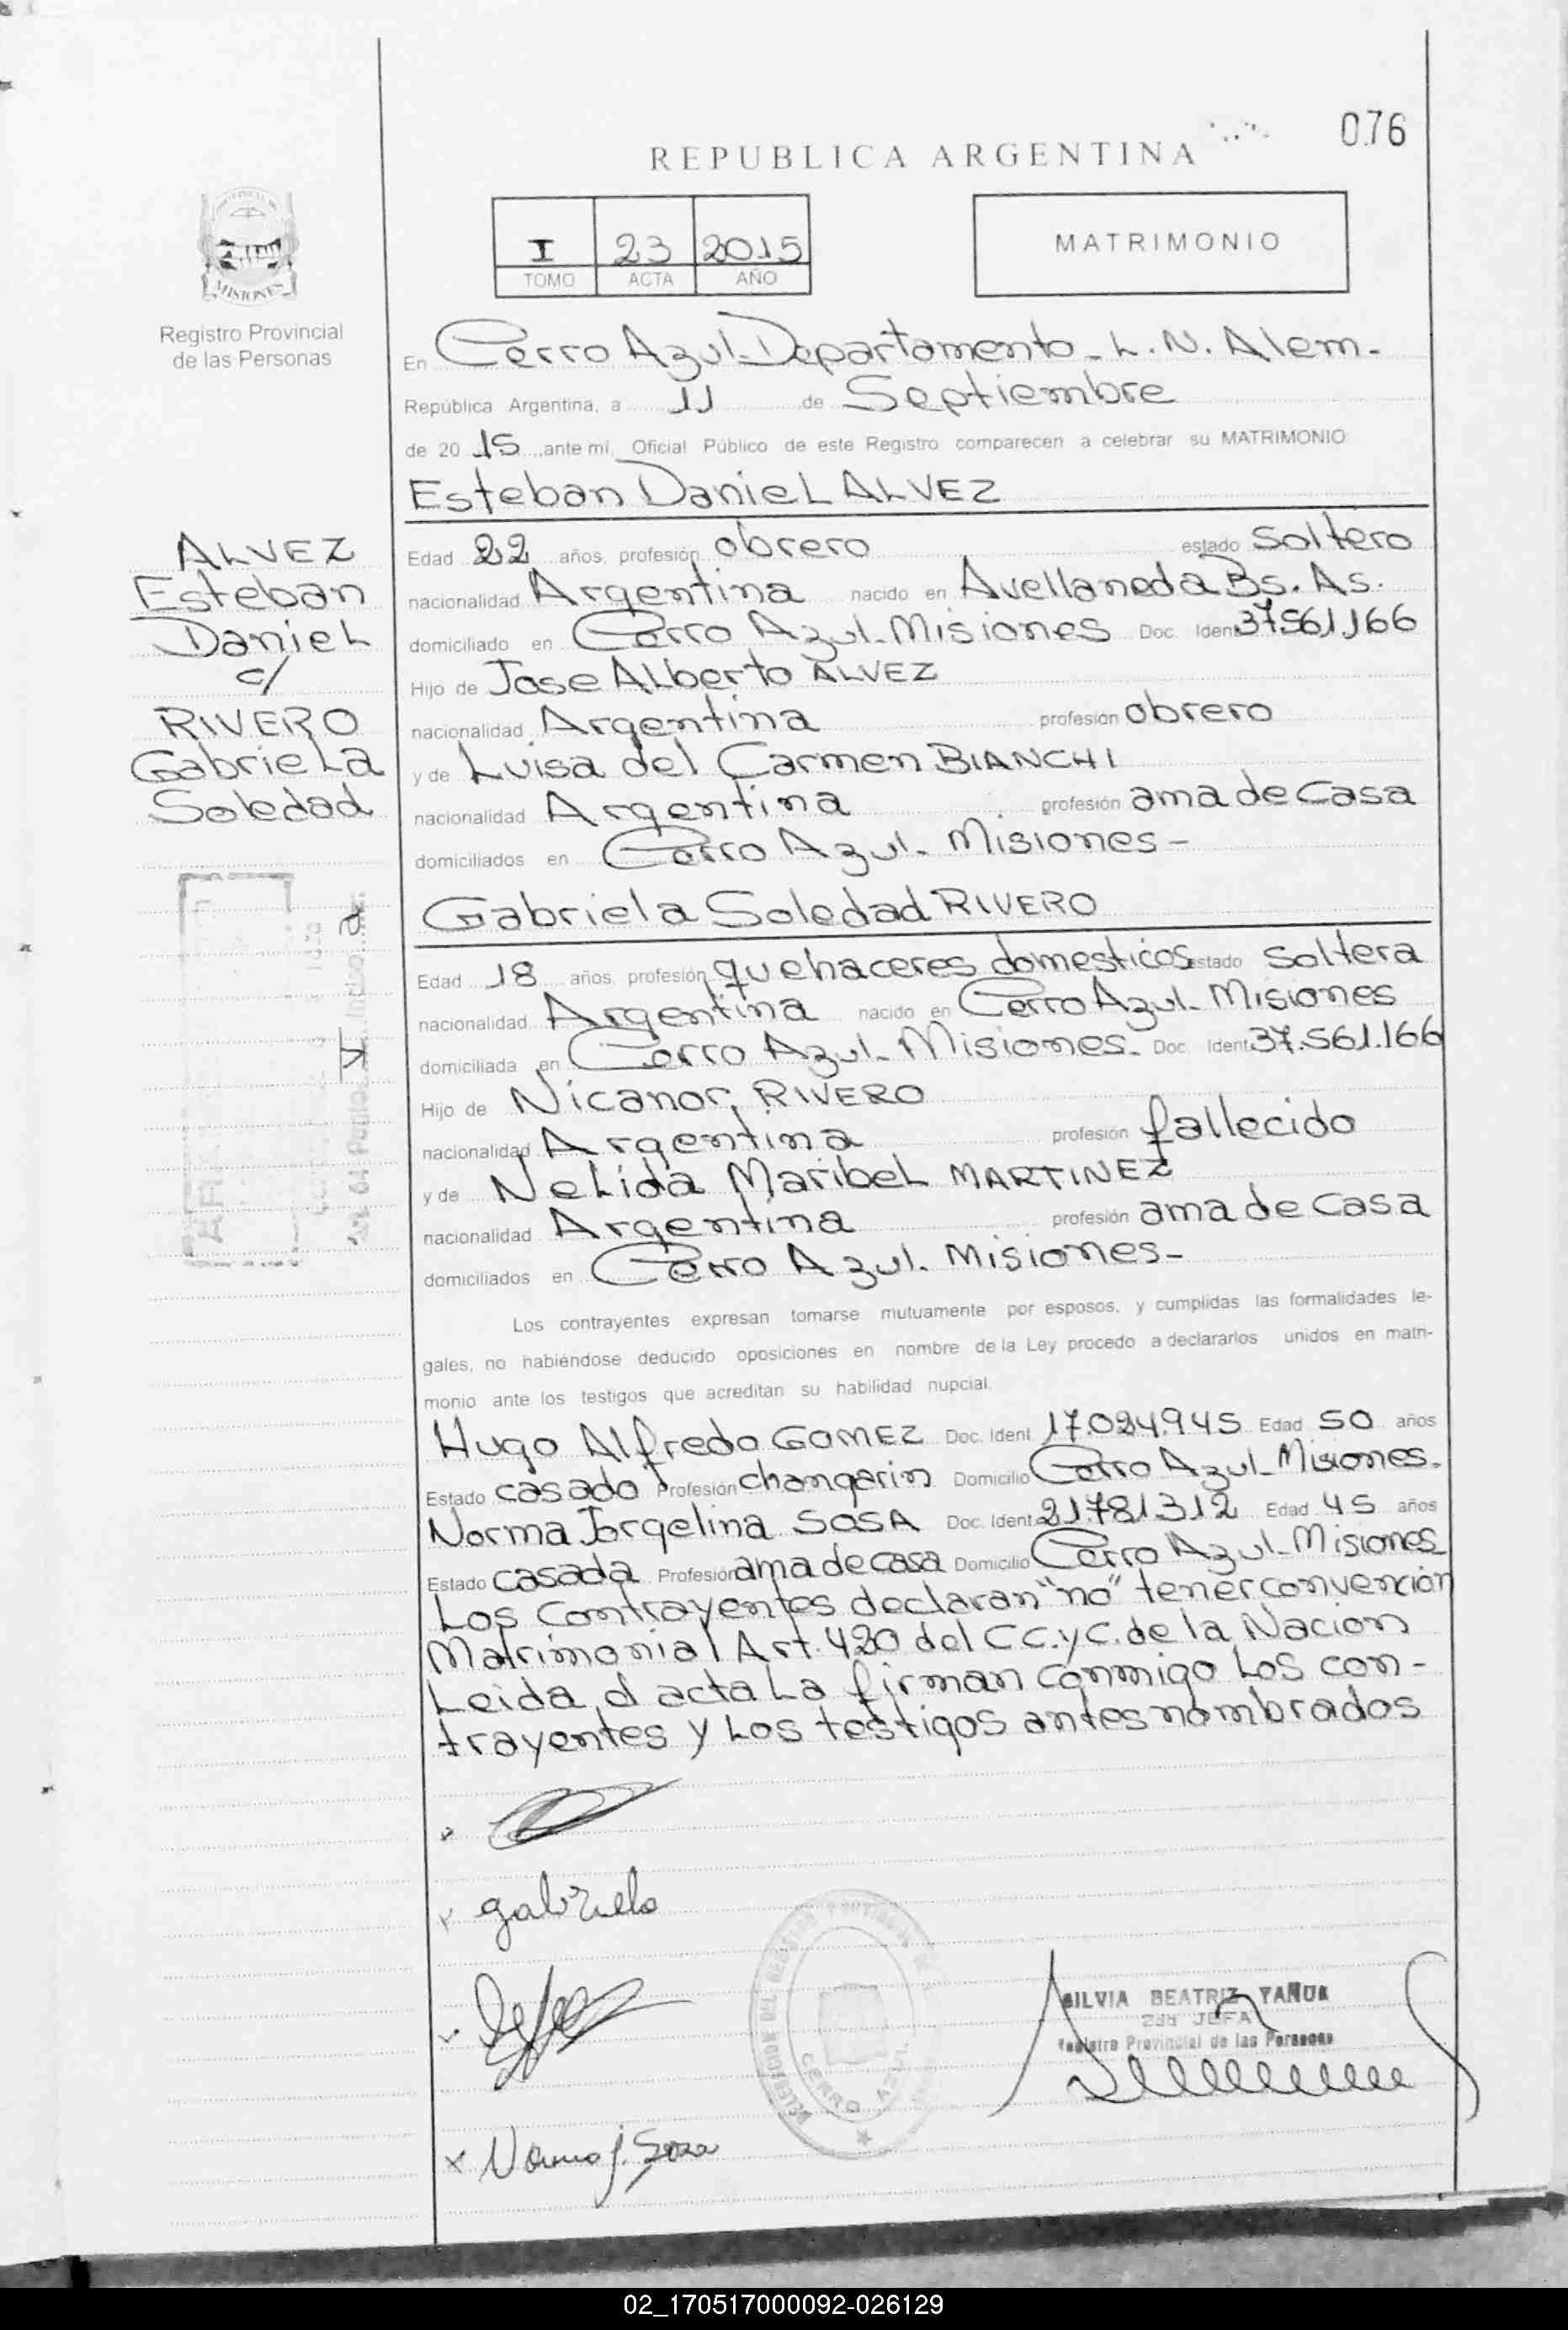 076
REPUBLICA ARGENTINA
I 23 2015
TOMO ACTA AÑO
MATRIMONIO
MISIONES
Registro Provincial
de las Personas
En Cerro Azul Departamento - L. N. Alem -
República Argentina, a 11 de Septiembre
de 20 15 ante mí, Oficial Público de este Registro comparecen a celebrar su MATRIMONIO
Esteban Daniel ALVEZ
ALVEZ
Esteban
Daniel
c/
RIVERO
Gabriela
Soledad
Edad 22 años, profesión obrero estado Soltero
nacionalidad Argentina nacido en Avellaneda Bs. As.
domiciliado en Cerro Azul - Misiones Doc. Ident 37.561.166
Hijo de Jose Alberto ALVEZ
nacionalidad Argentina profesión obrero
y de Luisa del Carmen BIANCHI
nacionalidad Argentina profesión ama de casa
domiciliados en Cerro Azul - Misiones -
Gabriela Soledad RIVERO
Edad 18 años, profesión quehaceres domesticos estado Soltera
nacionalidad Argentina nacido en Cerro Azul - Misiones
domiciliada en Cerro Azul - Misiones - Doc. Ident 37.561.166
Hijo de Nicanor RIVERO
nacionalidad Argentina profesión fallecido
y de Nelida Maribel MARTINEZ
nacionalidad Argentina profesión ama de casa
domiciliados en Cerro Azul - Misiones -
Los contrayentes expresan tomarse mutuamente por esposos, y cumplidas las formalidades le-
gales, no habiéndose deducido oposiciones en nombre de la Ley procedo a declararlos unidos en matri-
monio ante los testigos que acreditan su habilidad nupcial.
Hugo Alfredo GOMEZ Doc. Ident. 17.024.945 Edad 50 años
Estado casado Profesión changarin Domicilio Cerro Azul - Misiones -
Norma Jorgelina SOSA Doc. Ident 21.781.312 Edad 45 años
Estado casada Profesión ama de casa Domicilio Cerro Azul - Misiones
Los Contrayentes declaran "no" tener convención
Matrimonial Art. 420 del CC.yC. de la Nacion
Leida el acta la firman conmigo los con-
trayentes y los testigos antes nombrados
gabriela
SILVIA BEATRIZ YAÑUK
2da JEFA
Registro Provincial de las Personas
DELEGACION DEL REGISTRO PROVINCIAL
CERRO AZUL
Norma J. Sosa
02_170517000092-026129